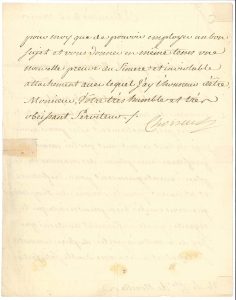 pour moy que de pouvoir employer un bon
sujet et vous donner en même tems une
nouvelle preuve du sincere et inviolable
attachement avec lequel j'ay l'honneur d'être,
Monsieur, Votre très humble et très
obeissant Serviteur ./.